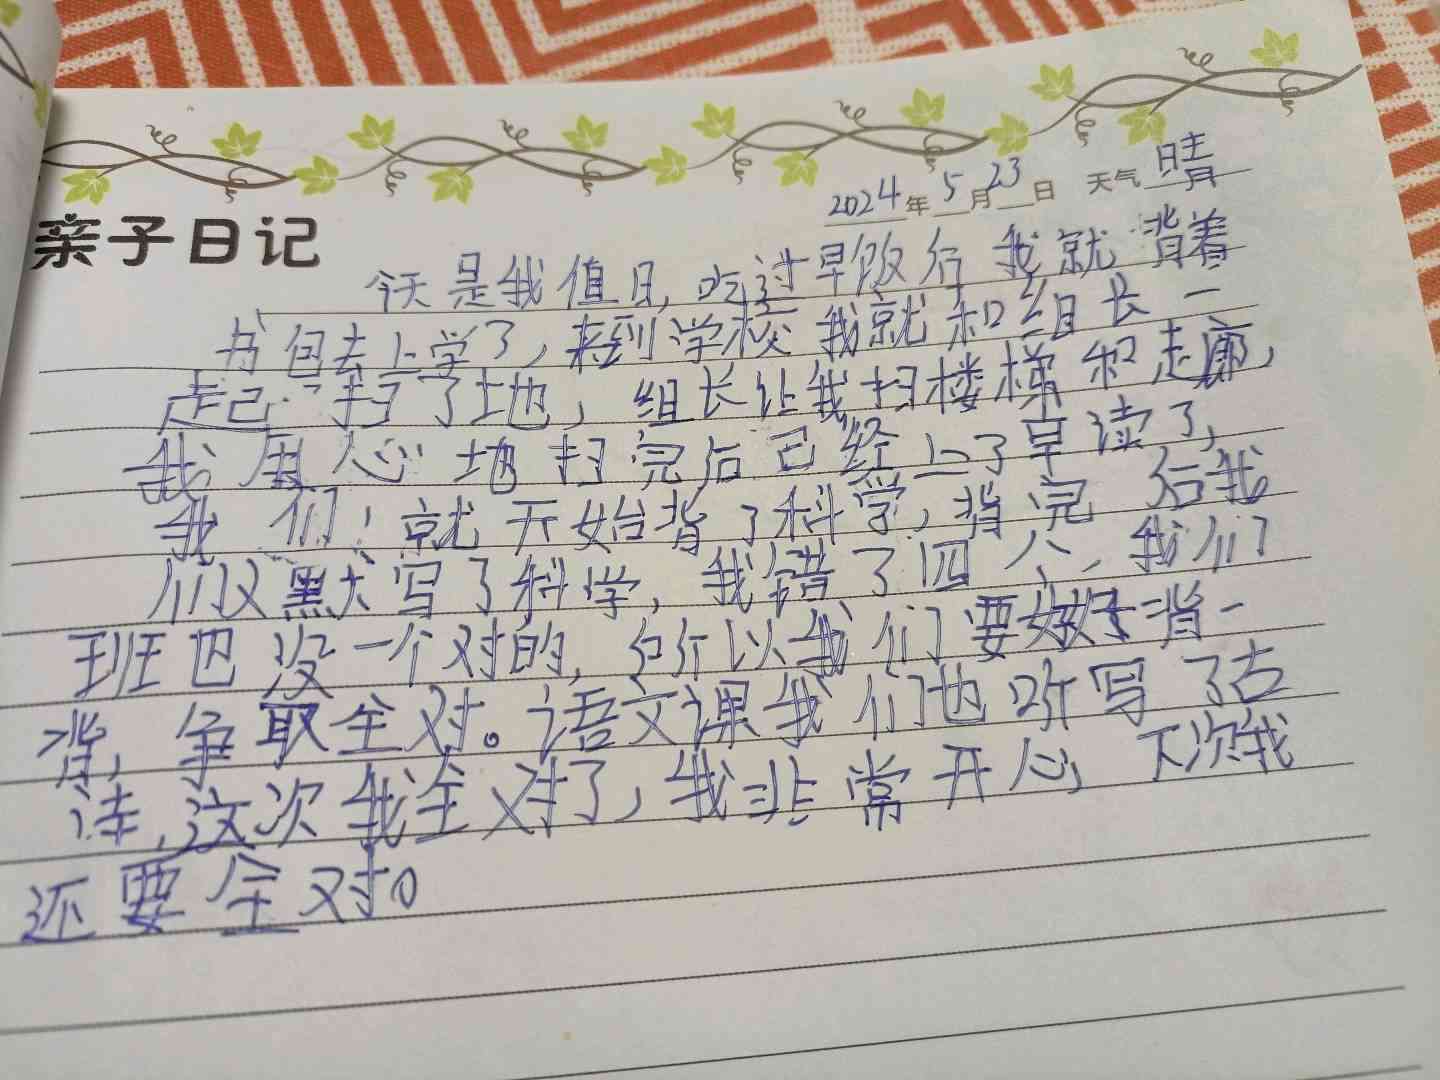 2024年5月23日 天气晴
亲子日记
今天是我值日,吃过早饭后我就背着
书包去上学了,来到学校我就和组长一
起已扫了地,组长让我扫楼梯和走廊,
我用心地扫完后已经上了早读了,
我们就开始背了科学,背完后我
们又默写了科学,我错了四个,我们
班也没一个对的,所以我们要好好背一
背,争取全对。语文课我们也听写了古
诗,这次我全对了,我非常开心,下次我
还要全对。